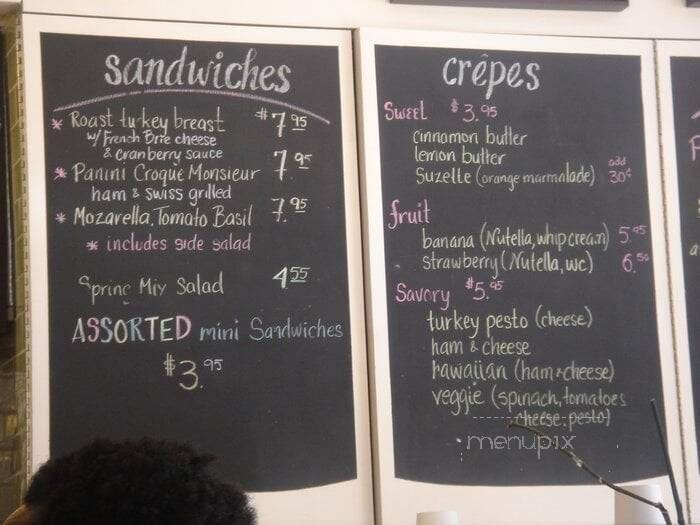 sandwiches
* Roast turkey breast $7.95
w/ French Brie cheese
& cranberry sauce
* Panini Croque Monsieur 7.95
ham & swiss grilled
* Mozarella, Tomato Basil 7.95
* includes side salad
Spring Mix Salad 4.55
ASSORTED mini Sandwiches
$3.95
crêpes
Sweet $3.95
cinnamon butter
lemon butter
Suzelle (orange marmalade) add 30¢
fruit
banana (Nutella, whip cream) 5.95
strawberry (Nutella, wc) 6.50
Savory $5.95
turkey pesto (cheese)
ham & cheese
hawaiian (ham & cheese)
veggie (spinach, tomatoes
cheese, pesto)
menupix